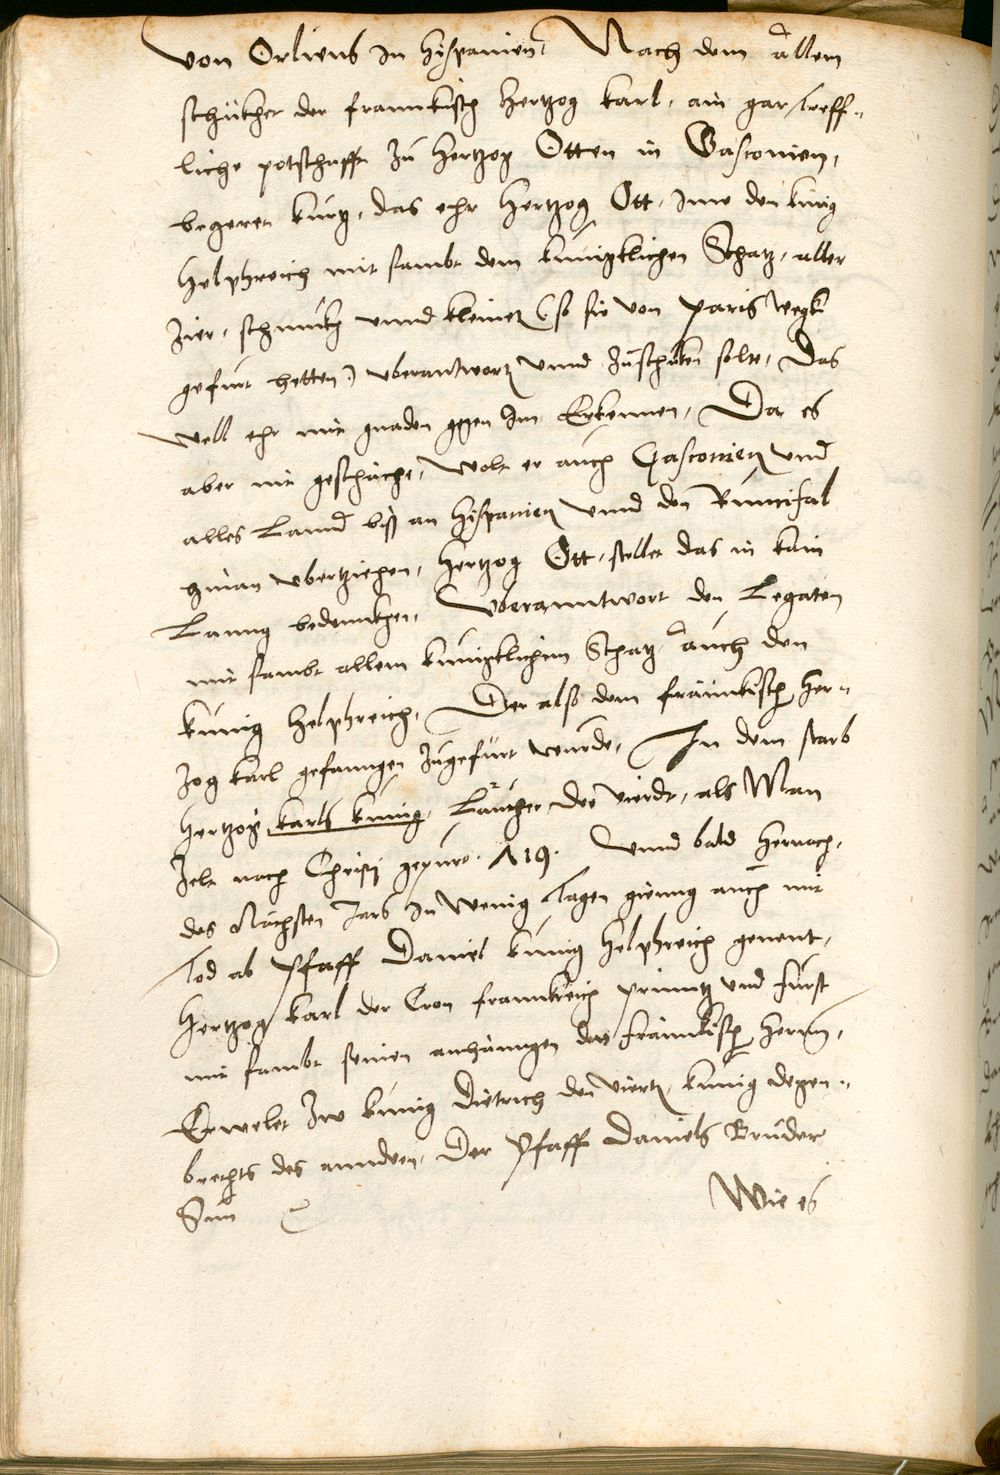 von Orliens in Hispanien, Nach dem Allem
schükhet der frannkisch Hertzog Karl, ain gar treff-
liche potschafft zu Hertzog Otten in Gasconien,
begeret kurtz, das ehr Hertzog Ott, ime den künig
Helphreich mit sambt dem künigklichen Schatz, aller
Zier, schmukh unnd kleinet (so sie von Paris wegk
gefürt hetten) uberantwort unnd Zuschiken solte, Das
well ehr mit gnaden gegen Im Erkennen, Da es
aber nit geschäche, wolt er auch Gasconien und
alles Lannd biß an Hispanien unnd den Runcifal
hinan ubertziehen, Hertzog Ott, stellet das in kain
Lanng bedennkhen, Uberanntwort den Legaten
mit sambt allem künigklichem Schatz Auch den
künig Helphreich, Der also dem frännkisch Her-
zog Karl gefanngen zugefürt wurde, In dem starb
Hertzog Karls künig, Lauther der vierdt, als Man
zelt nach Christj gepurt. 719. Unnd bald hernach,
des Nächsten Jars in wenig Tagen gienng auch mit
Tod ab Pfaff Daniel künig Helphreich genent,
Hertzog Karl der Cron Frannkreich Prinntz und Fürst
mit sambt seinen anhänngen den fränkisch Herrn,
Erwelet zw künig Dietrich den Viert, künig Degen-
brechts des anndern, Der Pfaff Daniels Bruder
Sun
Wie es